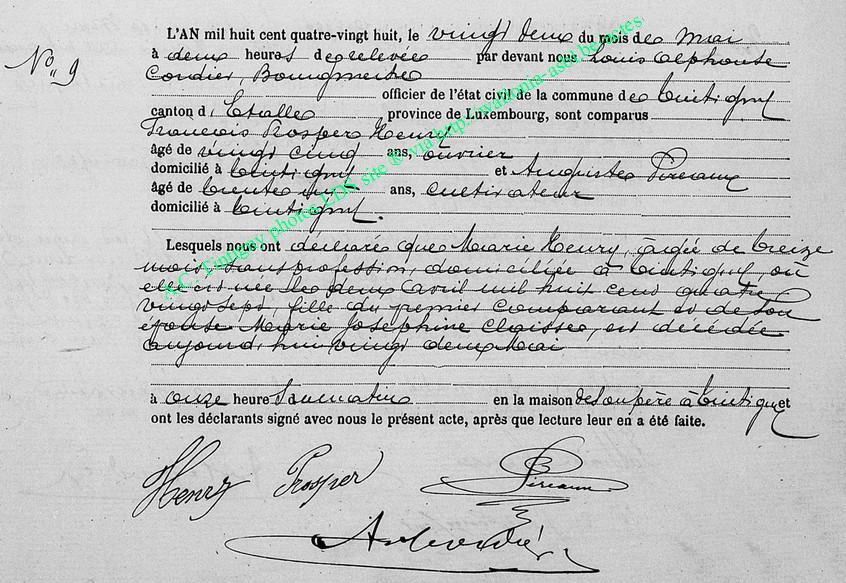 No 9
L'AN mil huit cent quatre-vingt huit, le vingt deux du mois de Mai
à deux heures de relevée par devant nous Louis Alphonse
Cordier, Bourgmestre
officier de l'état civil de la commune de Tintigny
canton d'Etalle province de Luxembourg, sont comparus
François Prosper Henry
âgé de vingt cinq ans, ouvrier
domicilié à Tintigny et Auguste Pireaux
âgé de trente ans, cultivateur
domicilié à Tintigny.
Lesquels nous ont déclaré que Marie Henry, âgée de treize
mois, sans profession, domiciliée à Tintigny, où
elle est née le deux avril mil huit cent quatre
vingt sept, fille du premier comparant et de son
épouse Marie Joséphine Claisse, est décédée
aujourd'hui vingt deux Mai
à onze heures du matin en la maison de son père à Tintigny et
ont les déclarants signé avec nous le présent acte, après que lecture leur en a été faite.
Henry Prosper Pireaux
A Cordier
A.C. Tintigny photos LDS site via http://wallonia-asbl.be/actes